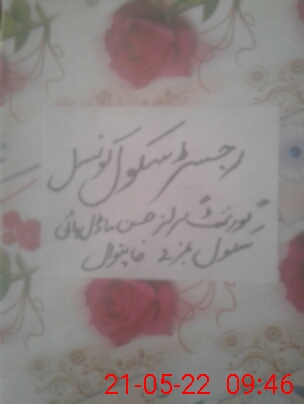 رجسٹر سکول کونسل
گورنمنٹ گرلز حسن ماڈل ہائی
سکول خانیوال
21-05-22 09:46